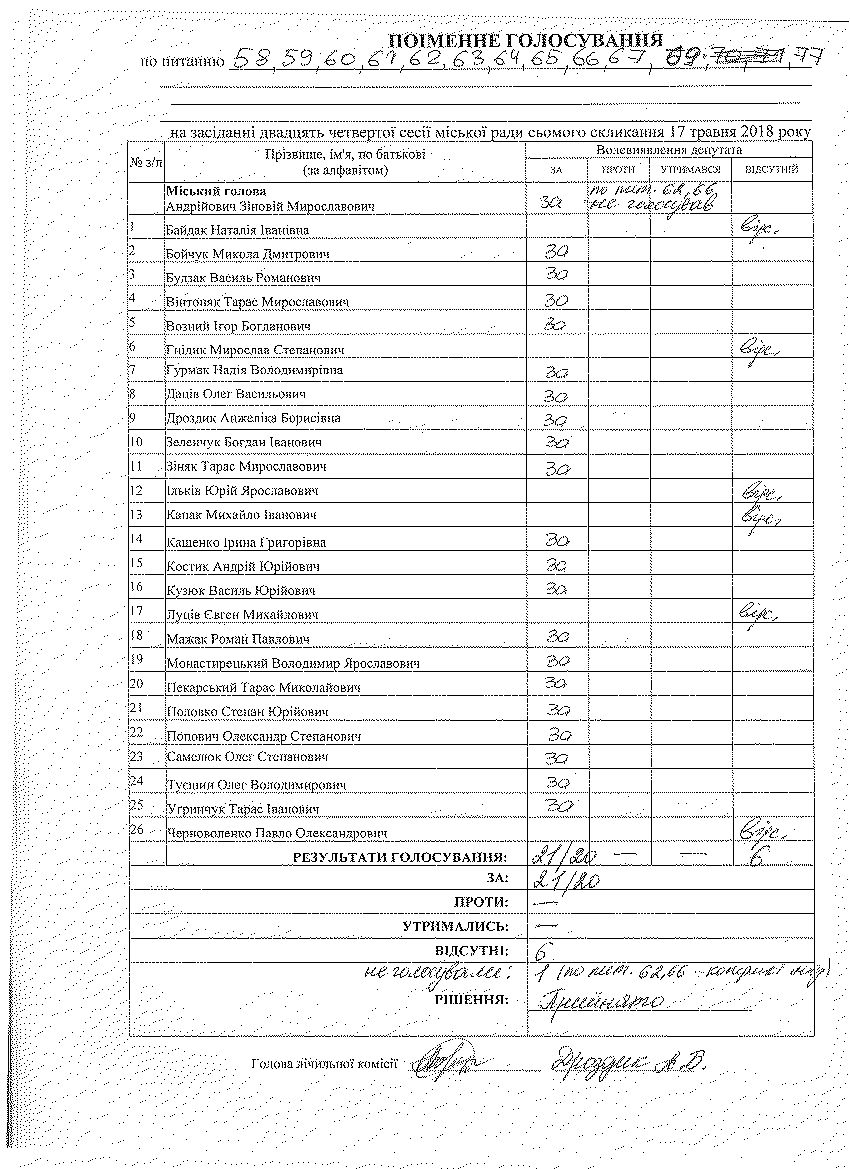 ПОІМЕННЕ ГОЛОСУВАННЯ
по питанню 58, 59, 60, 61, 62, 63, 64, 65, 66, 67, 69, 77
на засіданні двадцять четвертої сесії міської ради сьомого скликання 17 травня 2018 року
№ з/п Прізвище, ім'я, по батькові (за алфавітом) Волевиявлення депутата
ЗА ПРОТИ УТРИМАВСЯ ВІДСУТНІЙ
Міський голова
Андрійович Зіновій Мирославович за по пит. 62, 66 не голосував
1 Байдак Наталія Іванівна відс.
2 Бойчук Микола Дмитрович за
3 Будзак Василь Романович за
4 Вінтоняк Тарас Мирославович за
5 Возний Ігор Богданович за
6 Гнідик Мирослав Степанович відс.
7 Гурмак Надія Володимирівна за
8 Даців Олег Васильович за
9 Дроздик Анжеліка Борисівна за
10 Зеленчук Богдан Іванович за
11 Зіняк Тарас Мирославович за
12 Ільків Юрій Ярославович відс.
13 Капак Михайло Іванович відс.
14 Кащенко Ірина Григорівна за
15 Костик Андрій Юрійович за
16 Кузюк Василь Юрійович за
17 Луців Євген Михайлович відс.
18 Мажак Роман Павлович за
19 Монастирецький Володимир Ярославович за
20 Пекарський Тарас Миколайович за
21 Половко Степан Юрійович за
22 Попович Олександр Степанович за
23 Самелюк Олег Степанович за
24 Олег Володимирович за
25 Угринчук Тарас Іванович за
26 Черноволенко Павло Олександрович відс.
РЕЗУЛЬТАТИ ГОЛОСУВАННЯ: 21/20 — — 6
ЗА: 21/20
ПРОТИ: —
УТРИМАЛИСЬ: —
ВІДСУТНІ: 6
не голосували: 1 (по пит. 62, 66 -
РІШЕННЯ: Прийнято
Голова лічильної комісії Дроздик А.Б.